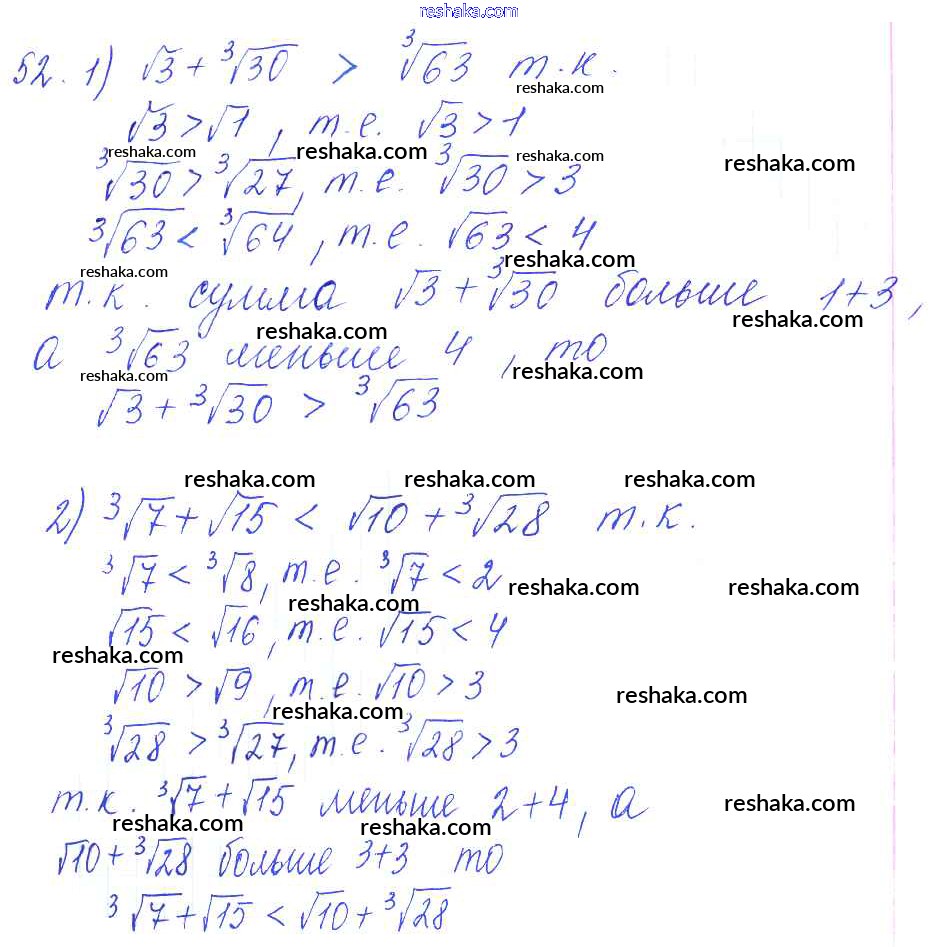 reshaka.com
52. 1) √3 + ³√30 > ³√63 т.к.
reshaka.com
√3 > √1, т.е. √3 > 1
reshaka.com reshaka.com reshaka.com reshaka.com
³√30 > ³√27, т.е. ³√30 > 3
³√63 < ³√64, т.е. √63 < 4
reshaka.com reshaka.com
т.к. сумма √3 + ³√30 больше 1+3,
reshaka.com reshaka.com
а ³√63 меньше 4, то
reshaka.com reshaka.com
√3 + ³√30 > ³√63
reshaka.com reshaka.com reshaka.com
2) ³√7 + √15 < √10 + ³√28 т.к.
³√7 < ³√8, т.е. ³√7 < 2
reshaka.com reshaka.com reshaka.com
√15 < √16, т.е. √15 < 4
reshaka.com
√10 > √9, т.е. √10 > 3
reshaka.com reshaka.com
³√28 > ³√27, т.е. ³√28 > 3
т.к. ³√7 + √15 меньше 2+4, а
reshaka.com reshaka.com reshaka.com
√10 + ³√28 больше 3+3 то
³√7 + √15 < √10 + ³√28